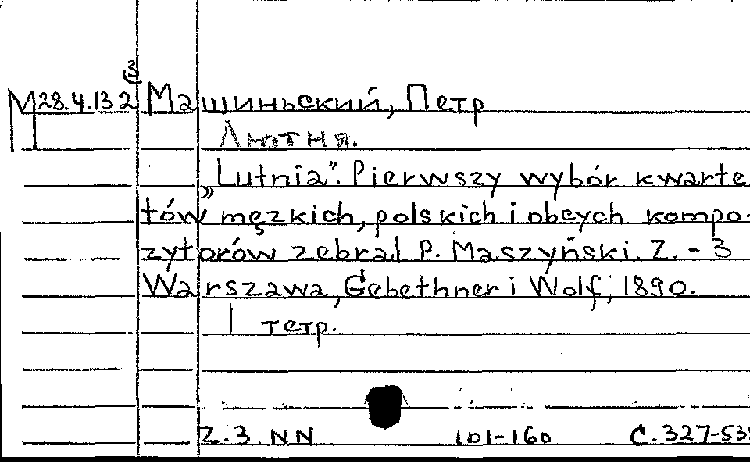 M 28.4.13 2 Машиньский, Петр
Лютня.
„Lutnia". Pierwszy wybór kwarte
tów męzkich, polskich i obcych kompo-
zytorów zebrał P. Maszyński. Z. - 3
Warszawa, Gebethner i Wolf, 1890.
1 тетр.
Z. 3. NN 101-160 C. 327-538